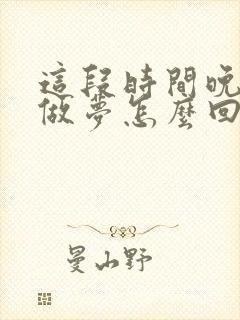 這段時間晚
做夢怎麼回
曼山野